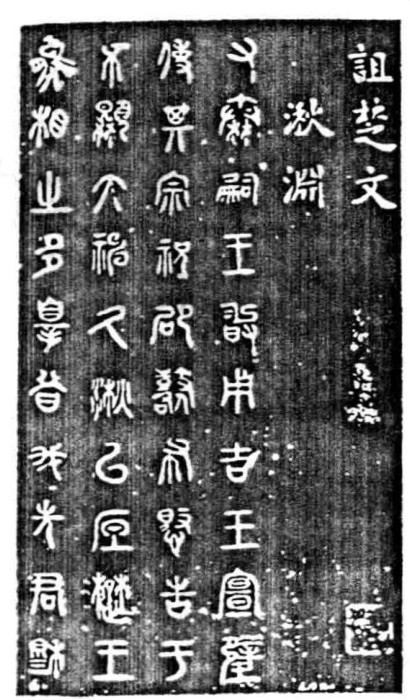 詛楚文
湫淵
又秦嗣王敢用吉玉宣璧
使其宗祝卲鼛布憗告于
不顯大神久湫㠯厎楚王
熊相之多辠昔我先君穆